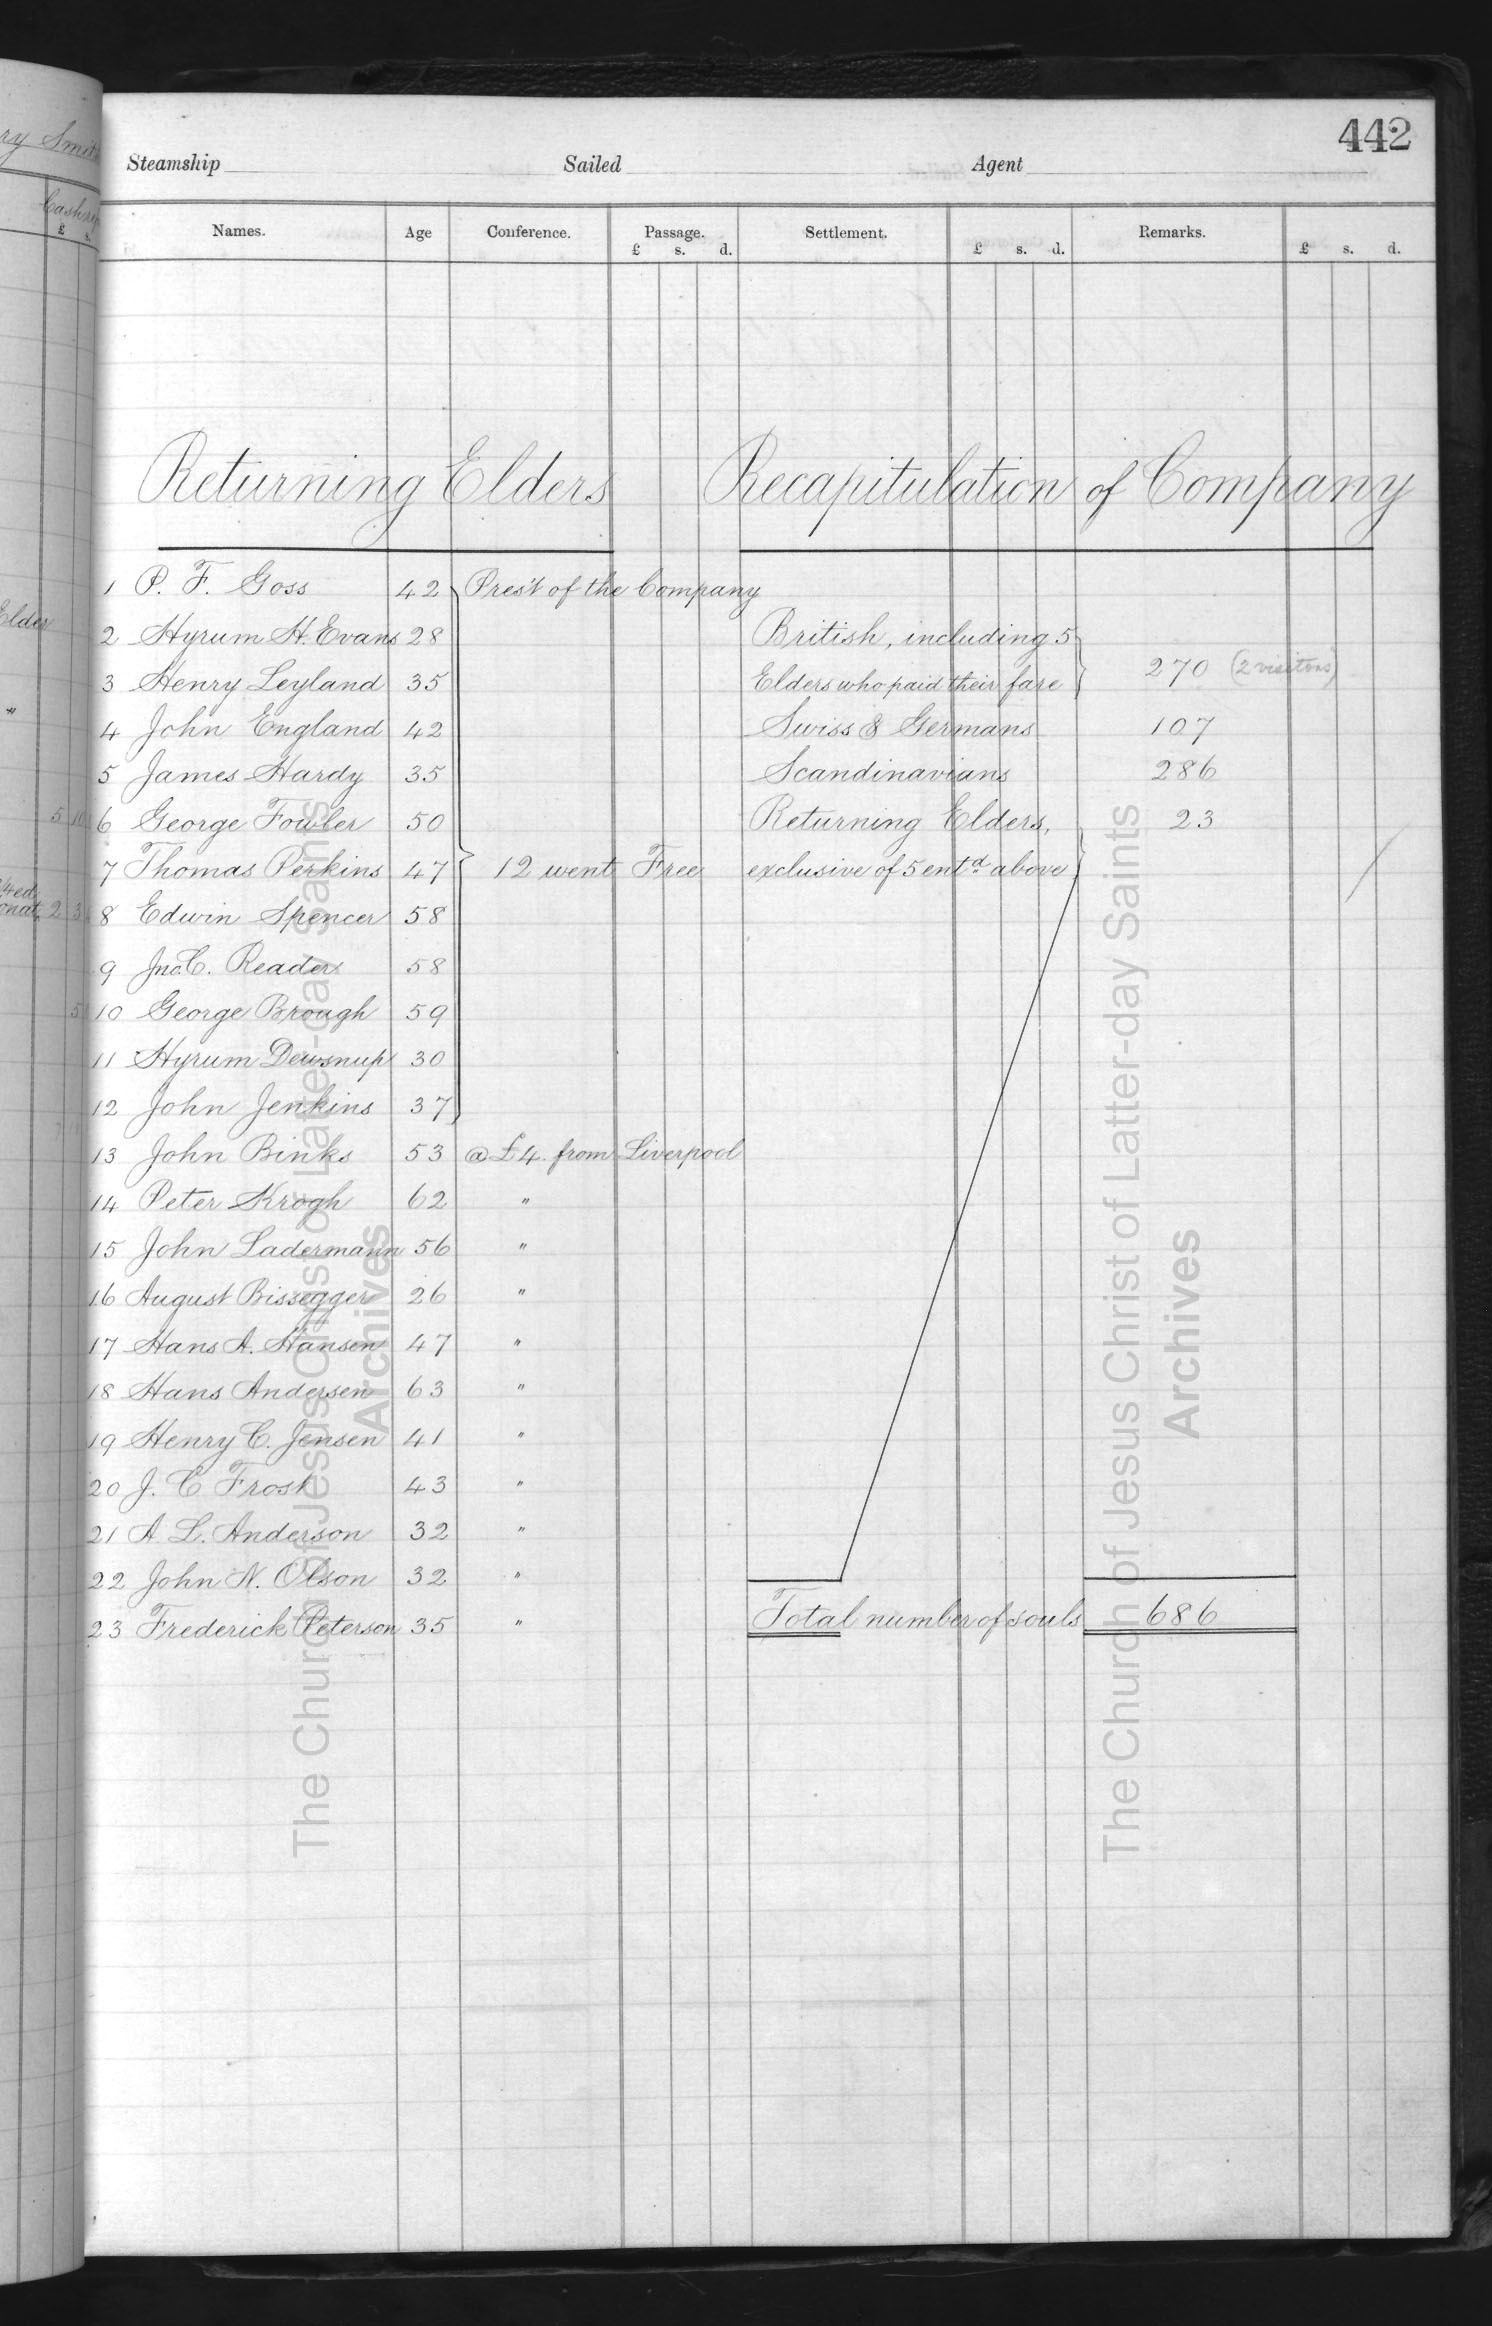 442
Steamship Sailed Agent
Names. Age Conference. Passage. Settlement. Remarks.
£ s. d. £ s. d. £ s. d.
Returning Elders Recapitulation of Company
1 P. F. Goss 42 Pres't of the Company
2 Hyrum H. Evans 28 British, including 5
3 Henry Leyland 35 Elders who paid their fare 270 (2 visitors)
4 John England 42 Swiss & Germans 107
5 James Hardy 35 Scandinavians 286
6 George Fowler 50 Returning Elders, 23
7 Thomas Perkins 47 12 went Free exclusive of 5 entd above
8 Edwin Spencer 58
9 Jno. C. Reader 58
10 George Brough 59
11 Hyrum Dewsnup 30
12 John Jenkins 37
13 John Binks 53 @ £4 from Liverpool
14 Peter Krogh 62 "
15 John Ladermann 56 "
16 August Bissegger 26 "
17 Hans A. Hansen 47 "
18 Hans Andersen 63 "
19 Henry C. Jensen 41 "
20 J. C Frost 43 "
21 A L. Anderson 32 "
22 John N. Olson 32 "
23 Frederick Peterson 35 " Total number of souls 686
The Church of Jesus Christ of Latter-day Saints
Archives
The Church of Jesus Christ of Latter-day Saints
Archives